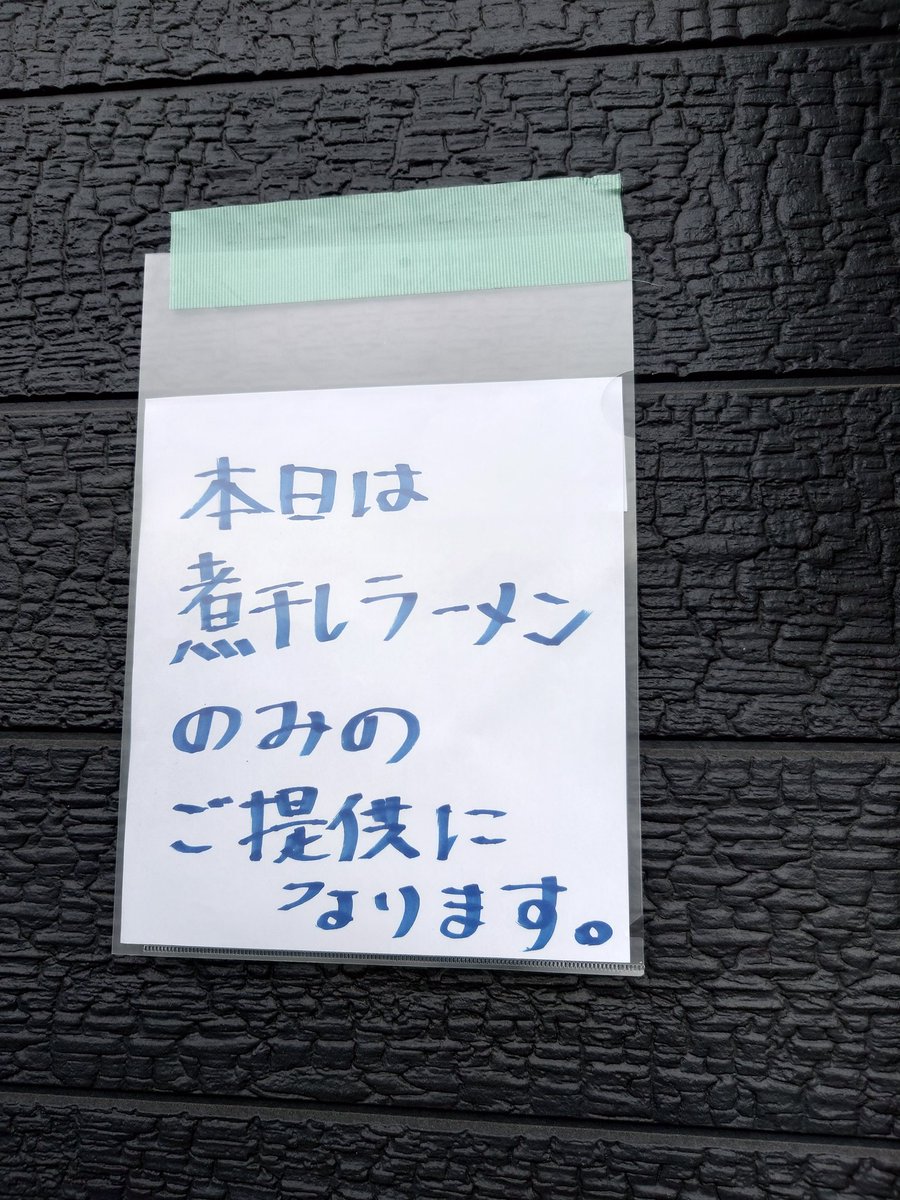 本日は
煮干しラーメン
のみの
ご提供に
なります。